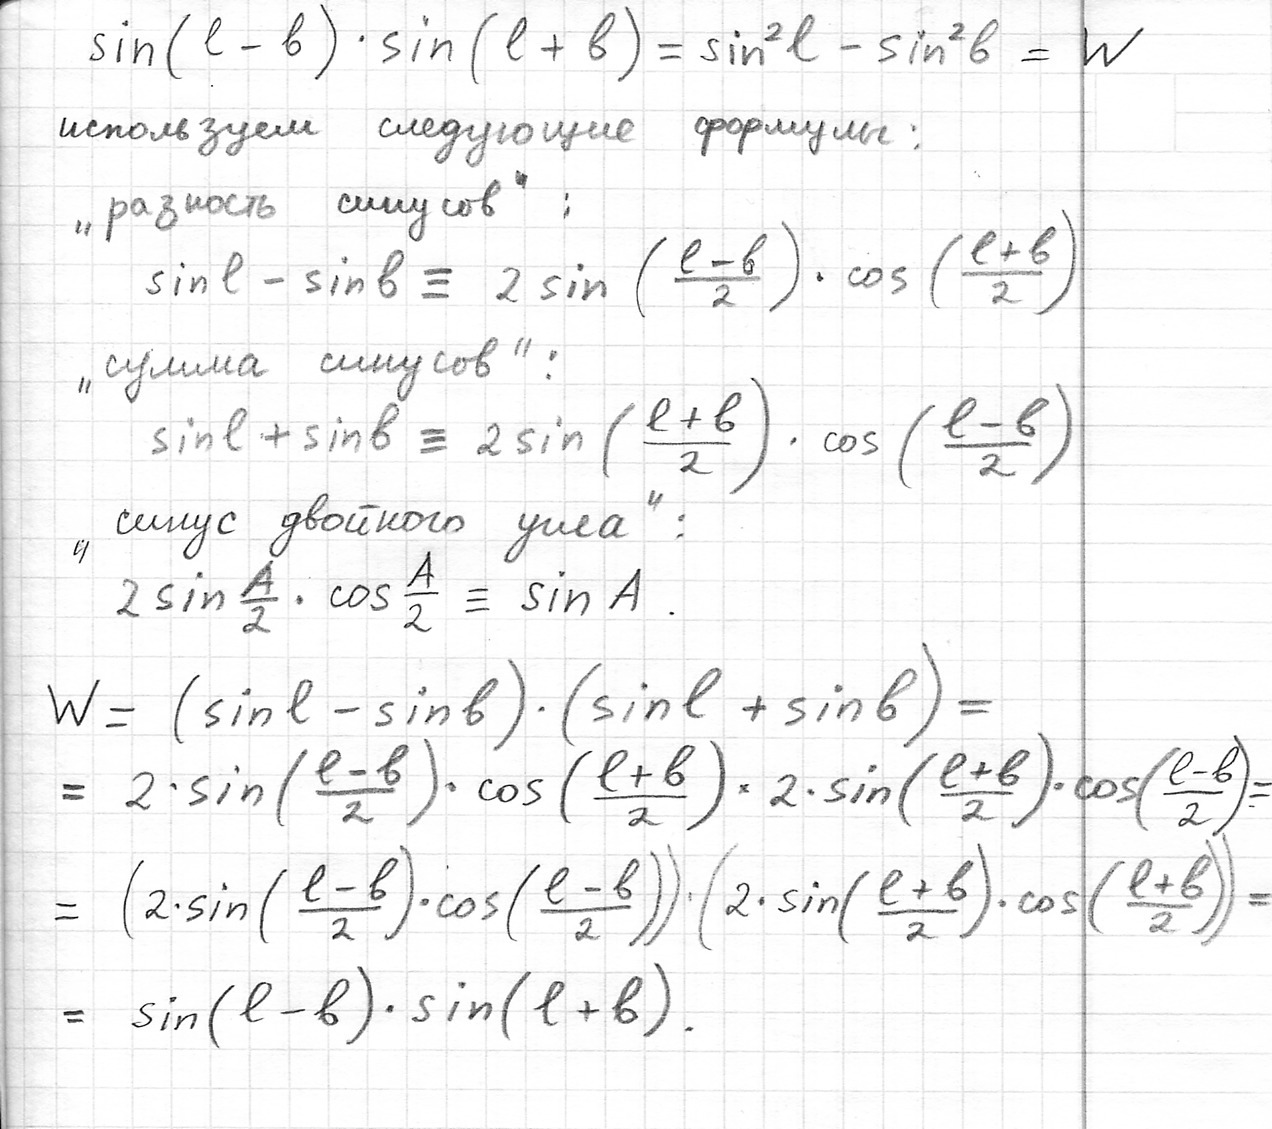 sin(l - b) · sin(l + b) = sin²l - sin²b = W
используем следующие формулы:
„разность синусов":
sin l - sin b ≡ 2 sin ((l-b)/2) · cos ((l+b)/2)
„сумма синусов":
sin l + sin b ≡ 2 sin ((l+b)/2) · cos ((l-b)/2)
„синус двойного угла":
2 sin A/2 · cos A/2 ≡ sin A.
W = (sin l - sin b) · (sin l + sin b) =
= 2 · sin((l-b)/2) · cos((l+b)/2) · 2 · sin((l+b)/2) · cos((l-b)/2) =
= (2 · sin((l-b)/2) · cos((l-b)/2)) · (2 · sin((l+b)/2) · cos((l+b)/2)) =
= sin(l - b) · sin(l + b).